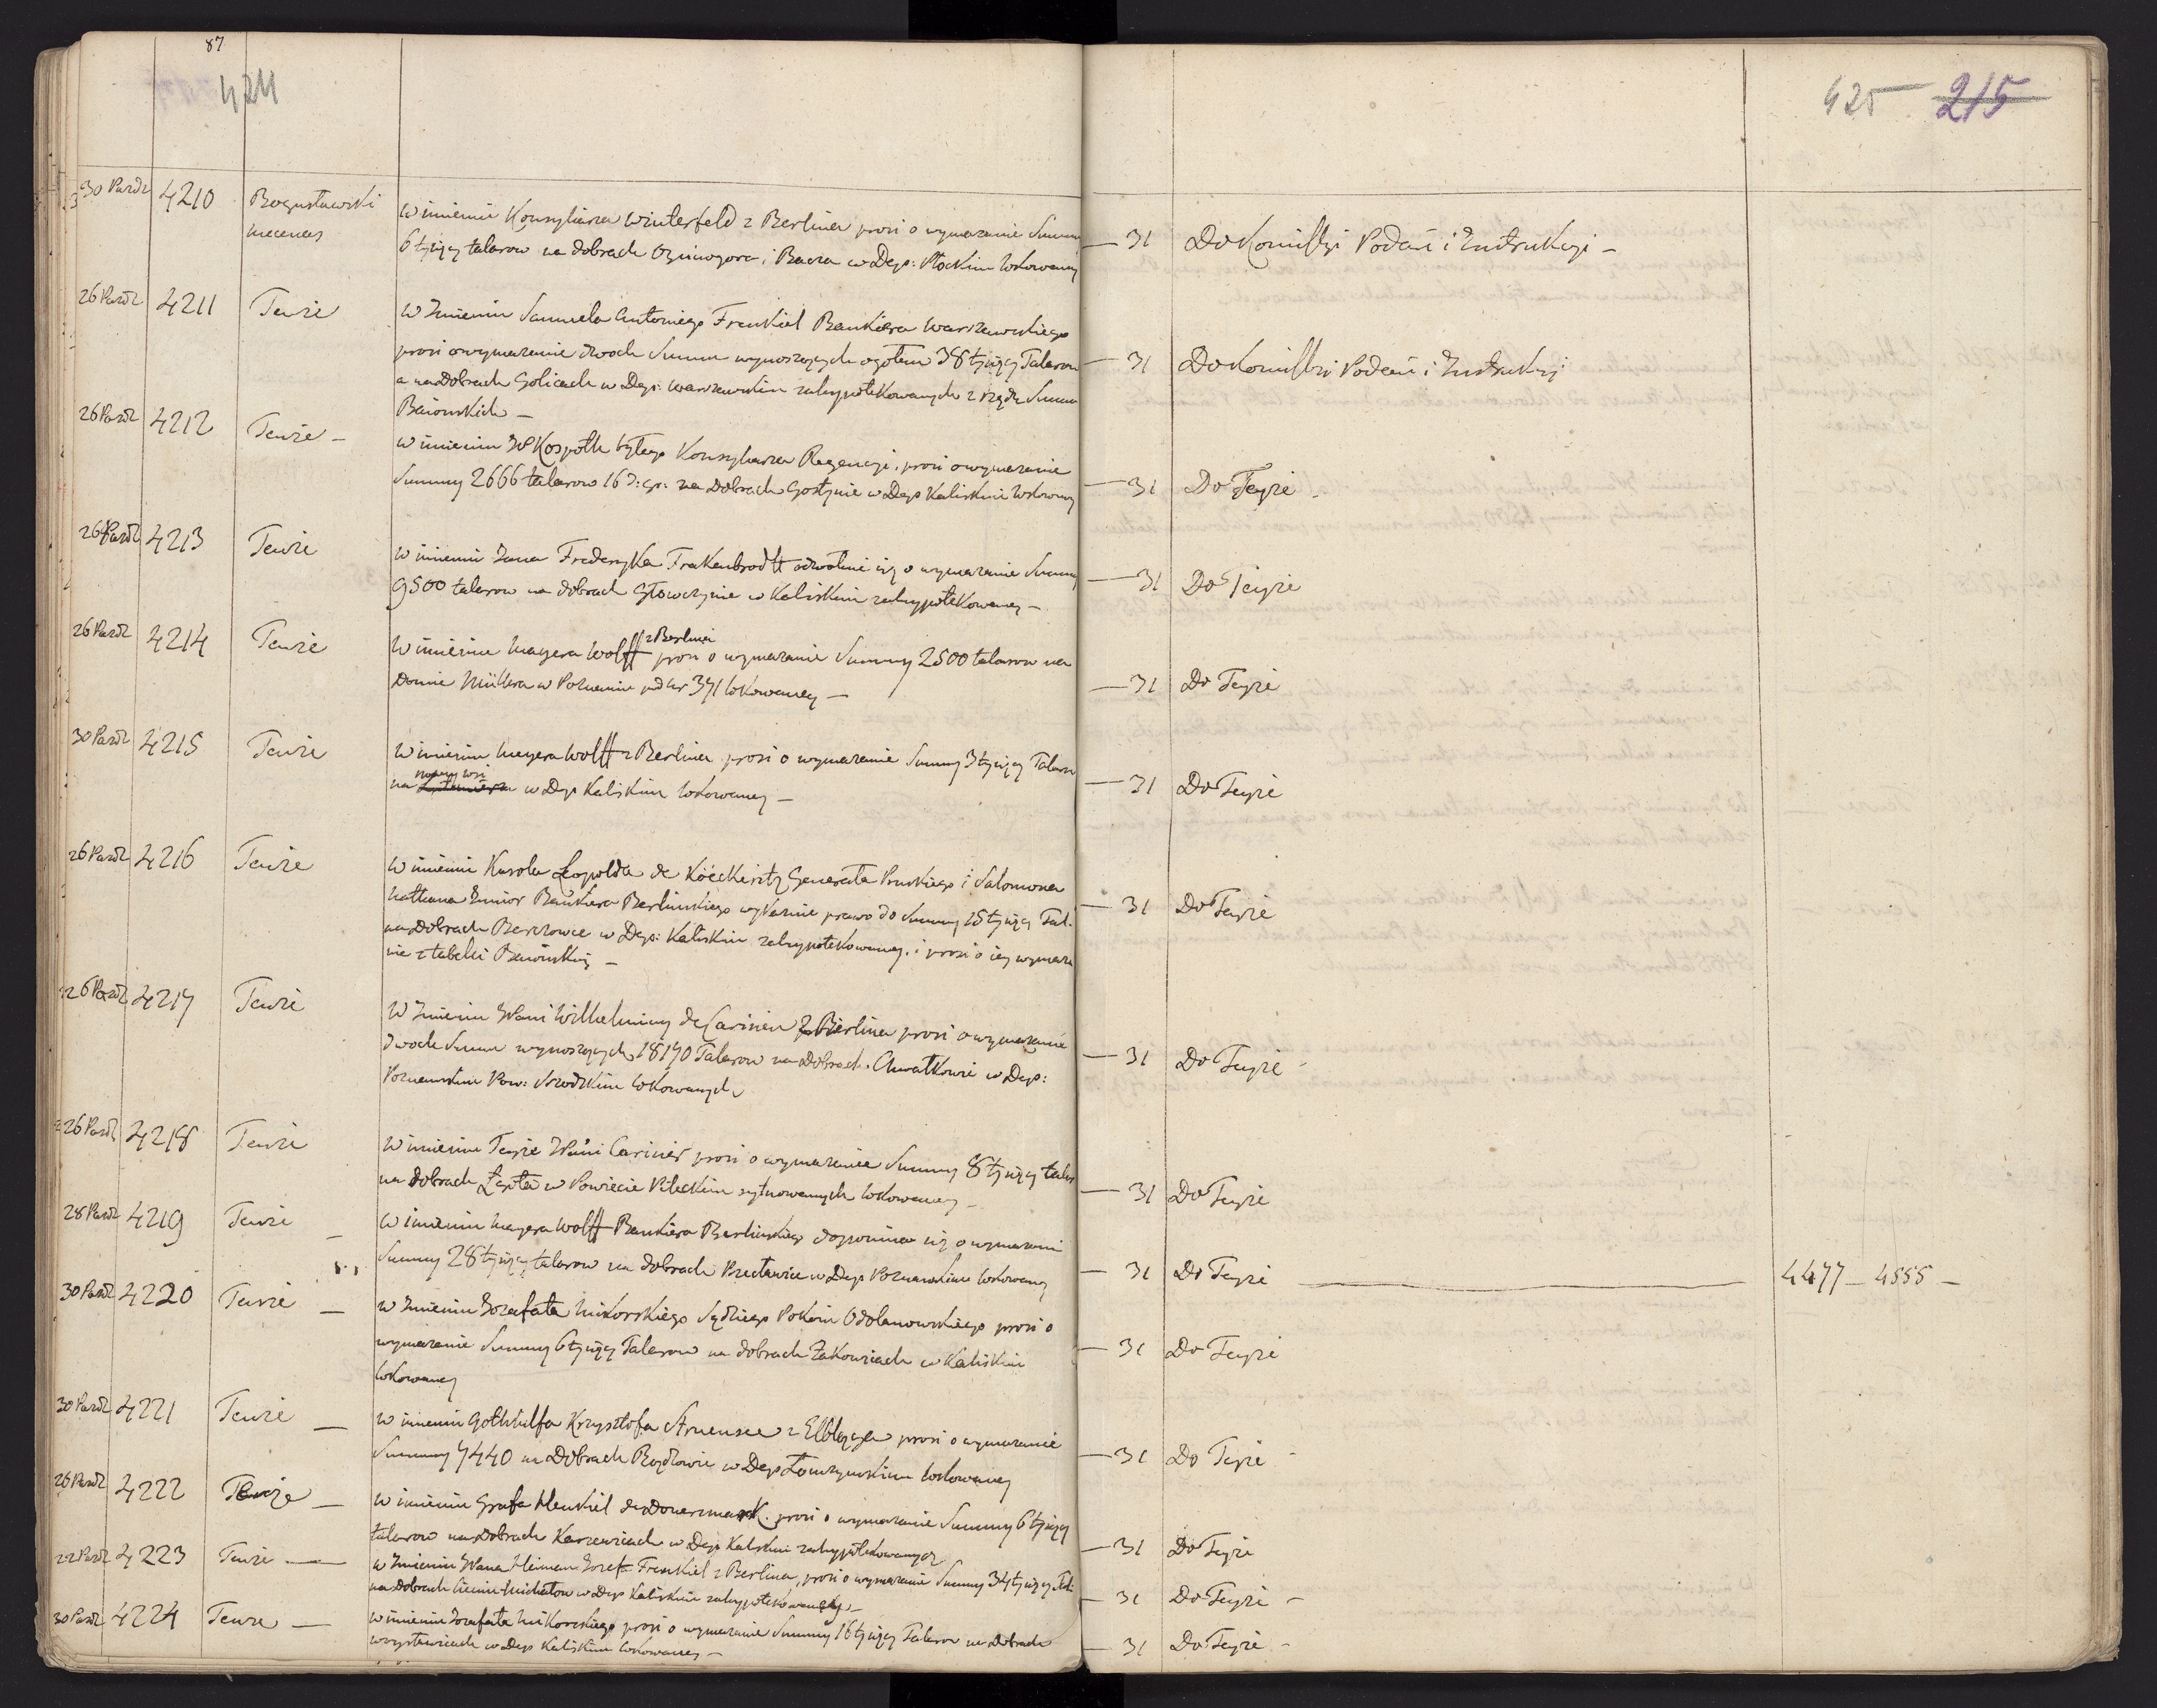 87
424
425 215
30 Pazdz 4210 Bogusławski mecenas
w imieniu Konsyliarza Winterfeld z Berlina prosi o wymazanie Summy
6 tysięcy talarow na dobrach i w Dep: Płockim lokowaney
— 31 Do Komissyi Podań i Instrukcyi —
26 Pazdz 4211 Tenże
W Imieniu Samuela Antoniego Frenkiel Bankiera Warszawskiego
prosi o wymazanie dwoch Summ wynoszących ogołem 38 tysięcy Talarow
a na Dobrach Golicach w Dep: Warszawskim zahypotekowanych z rzędu Summ
Baionskich —
— 31 Do Komissyi Podań i Instrukcyi
26 Pazdz 4212 Tenże —
w imieniu W Kospoth byłego Konsyliarza Regencyi, prosi o wymazanie
Summy 2666 talarow 16 d: gr: na Dobrach Gostynie w Dep Kaliskim lokowaney
— 31 Do Teyże —
26 Pazdz 4213 Tenże
w imieniu Jana Frederyka Frakenbrodtt odwołuie się o wymazanie Summy
9500 talarow na dobrach Głowczynie w Kaliskim zahypotekowaney —
— 31 Do Teyże
26 Pazdz 4214 Tenże
W imieniu Mayera Wolff z Berlina prosi o wymazanie Summy 2500 talarow na
Domie Müllera w Poznaniu pod Nr 371 lokowaney —
— 31 Do Teyże
30 Pazdz 4215 Tenże
W imieniu Meyera Wolff z Berlina prosi o wymazanie Summy 3 tysięcy Talarow
na nowey wsi w Dep Kaliskim lokowaney —
— 31 Do Teyże
26 Pazdz 4216 Tenże
W imieniu Karola Leopolda de Köeckeritz Generała Pruskiego i Salomona
Nathana Junior Bankiera Berlinskiego wykazuie prawo do Summy 15 tysięcy Tal.
na Dobrach w Dep: Kaliskim zahypotekowaney, i prosi o iey wymaza
nie z tabelli Baionskiey —
— 31 Do Teyże
26 Pazdz 4217 Tenże
W Imieniu WPani Wilhelminy de Carinier z Berlina prosi o wymazanie
dwoch Summ wynoszących 18170 Talarow na Dobrach Chwałkowie w Dep:
Poznanskim Pow: Srodzkim lokowanych
— 31 Do Teyże —
26 Pazdz 4218 Tenże
W imieniu Teyże WPani Carinier prosi o wymazanie Summy 8 tysięcy talar
na dobrach w Powiecie Pileckim sytuowanych lokowaney —
— 31 Do Teyże
28 Pazdz 4219 Tenże —
W imieniu Mayera Wolff Bankiera Berlinskiego dopomina się o wymazani
Summy 28 tysięcy talarow na dobrach w Dep Poznanskim lokowaney
— 31 Do Teyże — 4477 — 4555 —
30 Pazdz 4220 Tenże —
W Imieniu Jozafata Mikorskiego Sędziego Pokoiu Odolanowskiego prosi o
wymazanie Summy 6 tysięcy Talarow na dobrach Zakowicach w Kaliskim
lokowaney
— 31 Do Teyże
30 Pazdz 4221 Tenże —
W imieniu Gothhilfa Krzysztofa Struensee z Elbląga prosi o wymazanie
Summy 7440 na Dobrach w Dep Łomżynskim lokowaney
— 31 Do Teyże —
26 Pazdz 4222 Tenże —
W imieniu Grafa Henkiel de Donersmark. prosi o wymazanie Summy 6 tysięcy
talarow na Dobrach w Dep Kaliskim zahypotekowaney
— 31 Do Teyże
22 Pazdz 4223 Tenże —
w Imieniu WPana Heiman Jozef Frenkiel z Berlina, prosi o wymazanie Summy 34 tysięcy Tal:
na Dobrach Michałow w Dep Kaliskim zahypotekowaney —
— 31 Do Teyże —
30 Pazdz 4224 Tenże —
w imieniu Jozafata Mikorskiego prosi o wymazanie Summy 16 tysięcy Talarow na Dobrach
w Dep Kaliskim lokowaney —
— 31 Do Teyże —